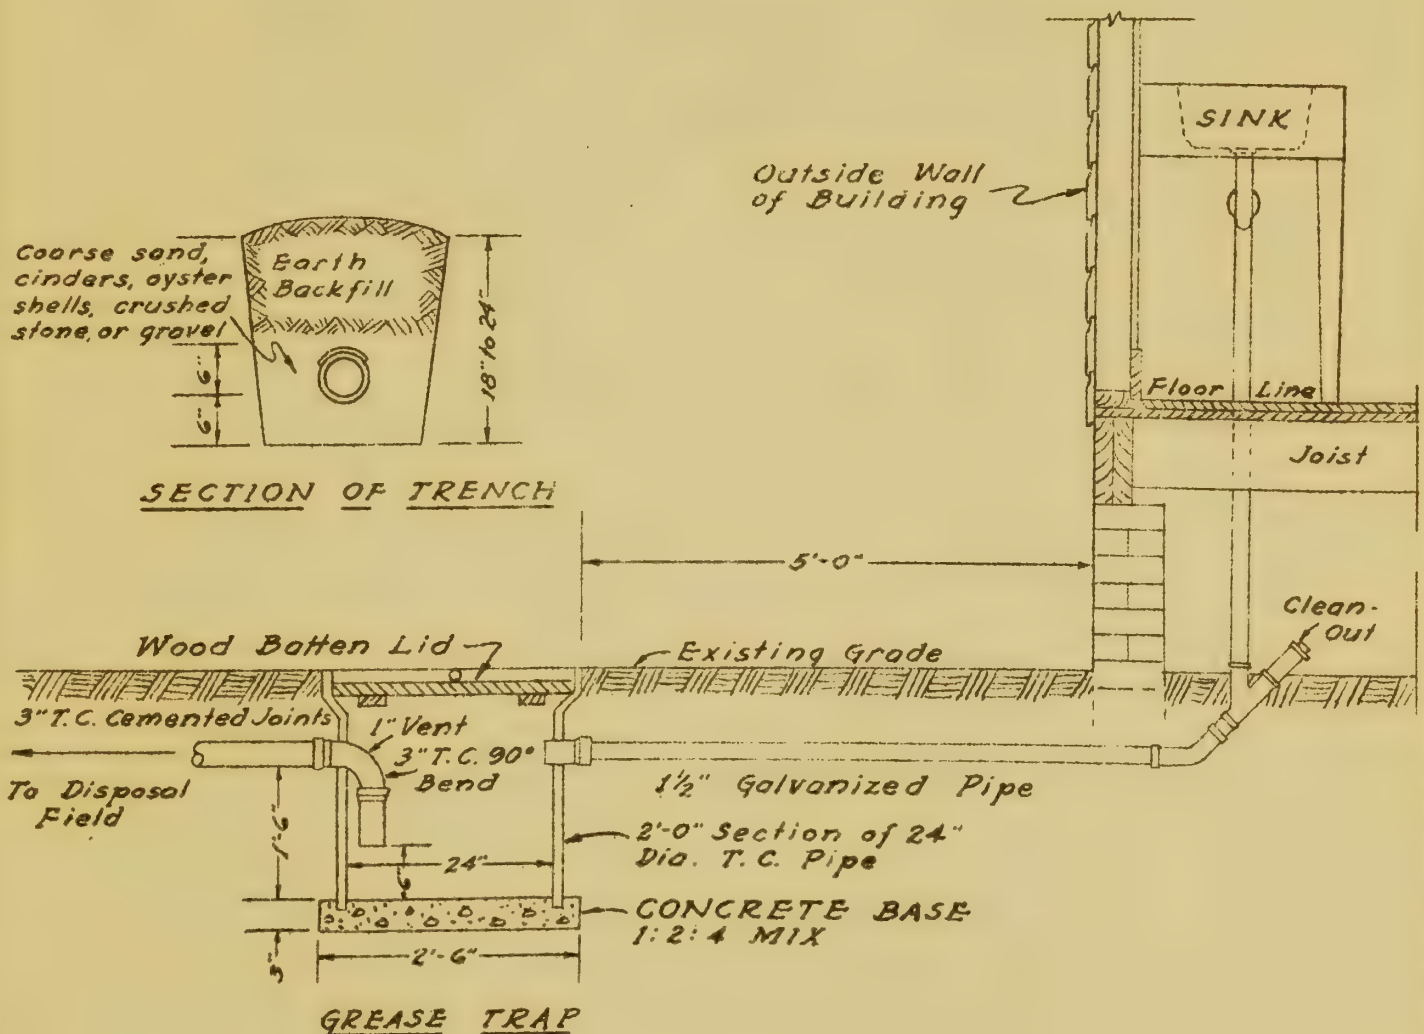 SINK
Outside Wall
of Building
Coarse sand,
cinders, oyster
shells, crushed
stone, or gravel
Earth
Backfill
6"
6"
18" to 24"
Floor Line
Joist
SECTION OF TRENCH
5'-0"
Clean-
out
Wood Batten Lid
Existing Grade
3" T.C. Cemented Joints
1" Vent
3" T.C. 90°
Bend
To Disposal
Field
1'-6"
1½" Galvanized Pipe
2'-0" Section of 24"
Dia. T.C. Pipe
24"
6"
CONCRETE BASE
1:2:4 MIX
3"
2'-6"
GREASE TRAP